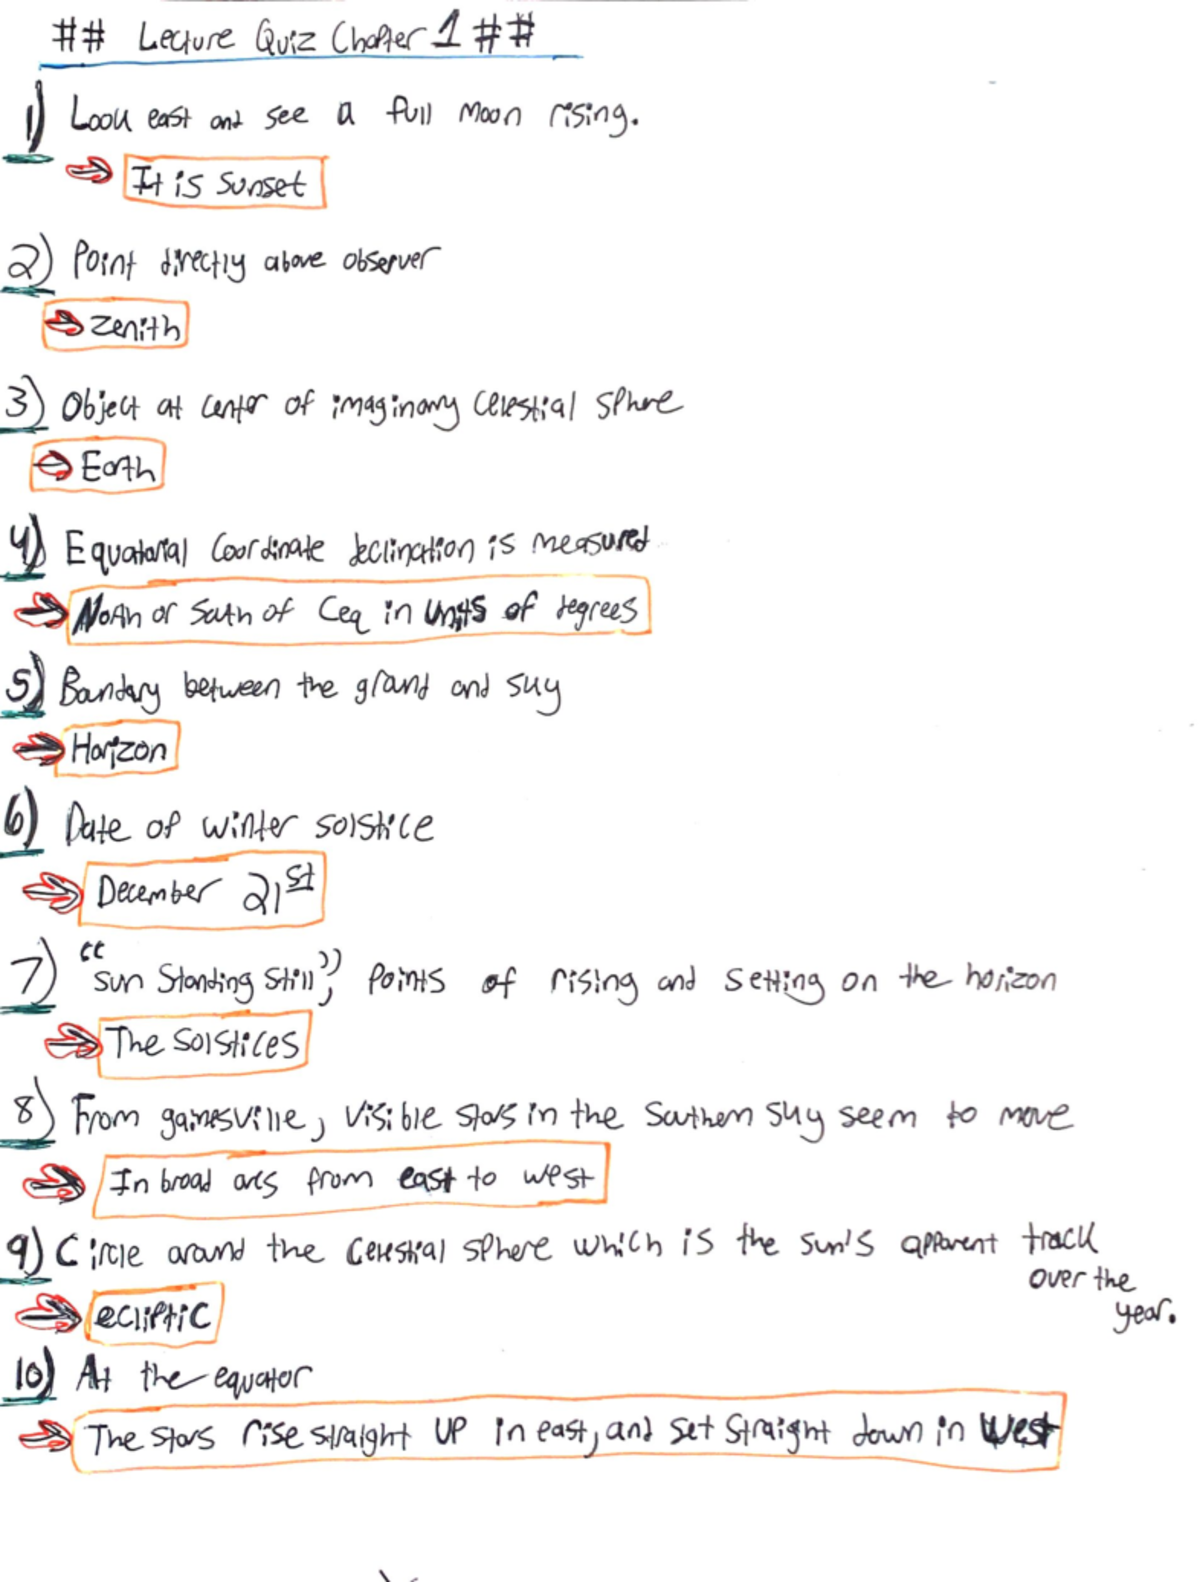 ## Lecture Quiz Chapter 1 ##
1) Look east and see a full moon rising.
It is sunset
2) Point directly above observer
Zenith
3) Object at center of imaginary celestial sphere
Earth
4) Equatorial coordinate declination is measured
North or South of Ceq in units of degrees
5) Boundary between the ground and sky
Horizon
6) Date of winter solstice
December 21st
7) "Sun Standing Still", Points of rising and setting on the horizon
The Solstices
8) From gainesville, visible stars in the Southern sky seem to move
In broad arcs from east to west
9) Circle around the celestial sphere which is the sun's apparent track
over the
year.
ecliptic
10) At the equator
The stars rise straight up in east, and set straight down in west